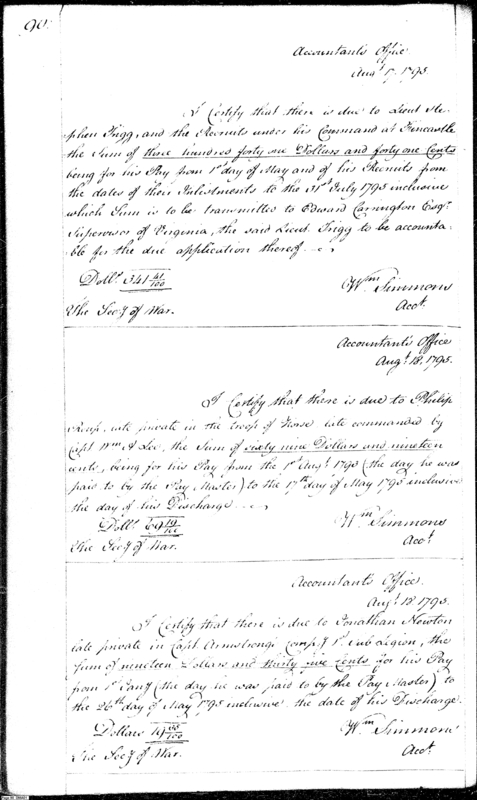 90.
Accountant's Office
Augt 17. 1795.
I Certify that there is due to Lieut Ste-
phen Trigg, and the Recruits under his Command at Fincastle
the Sum of three hundred forty one Dollars and forty one Cents
being for his Pay from 1st day of May and of his Recruits from
the dates of their Inlistments to the 31st July 1795 inclusive
which Sum is to be transmitted to Edward Carrington Esqr
Supervisor of Virginia, the said Lieut. Trigg to be accounta-
ble for the due application thereof
Dolls. 341 41/100
Wm Simmons
Acct.
The Secy of War.
Accountant's Office
Augt 18. 1795.
I Certify that there is due to Philip
late private in the troop of Horse late commanded by
Capt Wm A Lee, the Sum of sixty nine Dollars and nineteen
cents, being for his Pay from the 1st Augt 1793 (the day he was
paid to by the Pay Master) to the 17th day of May 1795 inclusive
the day of his Discharge
Dolls. 69 19/100
Wm Simmons
Acct.
The Secy of War.
Accountant's Office.
Augt 18. 1795.
I Certify that there is due to Jonathan Newton
late private in Capt. Armstrong's Compy 1st Sub Legion, the
Sum of nineteen Dollars and thirty five cents for his Pay
from 1st Jany (the day he was paid to by the Pay Master) to
the 26th day of May 1795 inclusive the date of his Discharge.
Dollars 19 35/100
Wm Simmons
Acct.
The Secy of War.